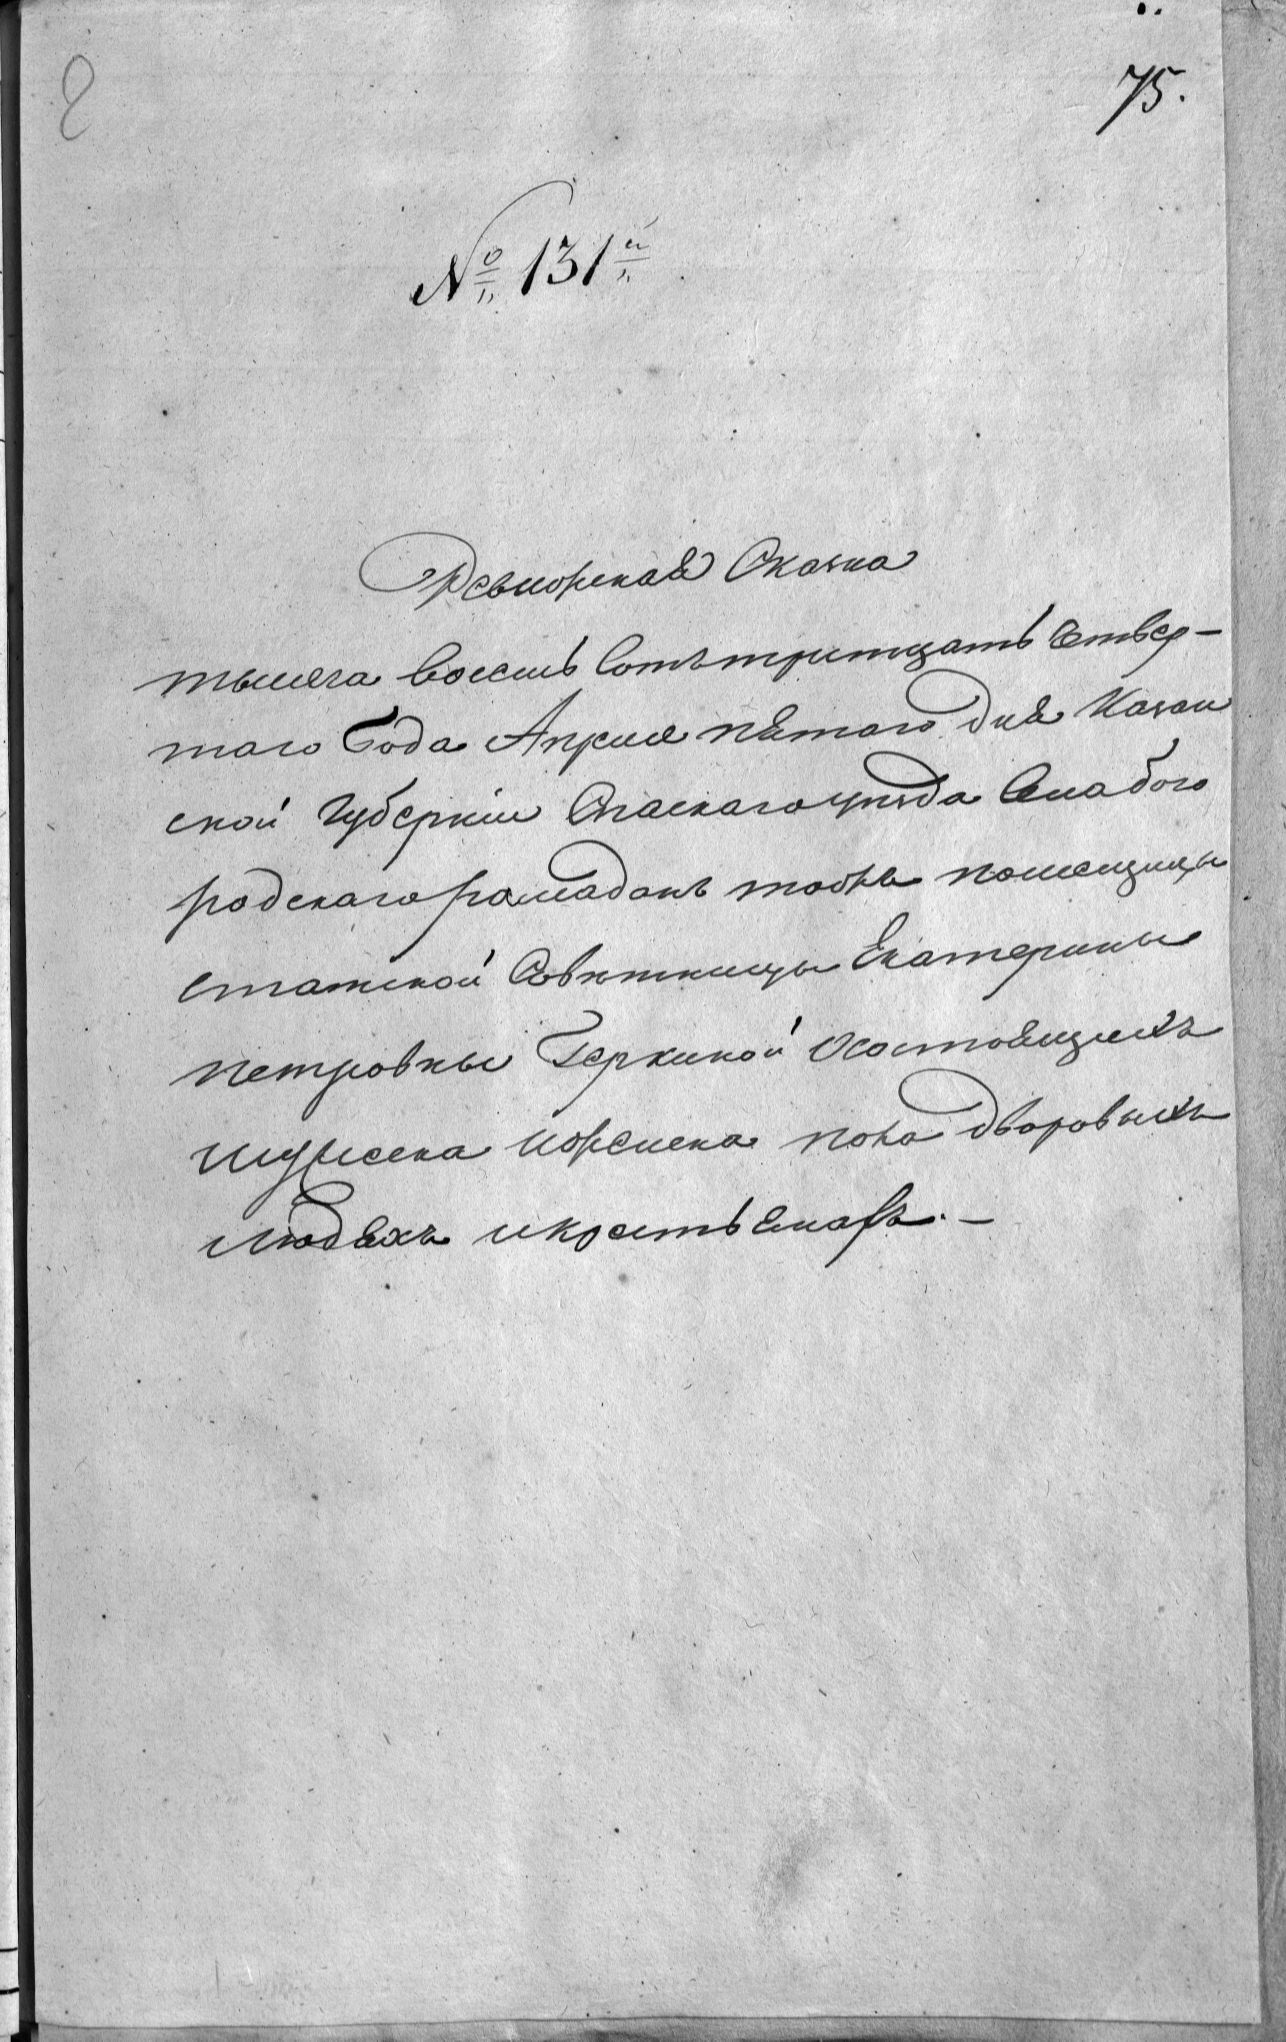 75.
№ 131й
Ревизская Сказка
тысяча восемь сотъ тритцать четвер-
таго Года Апреля пятаго дня Казан
ской Губернiи Спаскаго уезда Слабого
родскаго рамадан тожъ помещицы
статской Советницы Екатерины
петровны Геркиной Осостоящихъ
мужеска иженска пола дворовыхъ
людяхъ икрестьянахъ.-